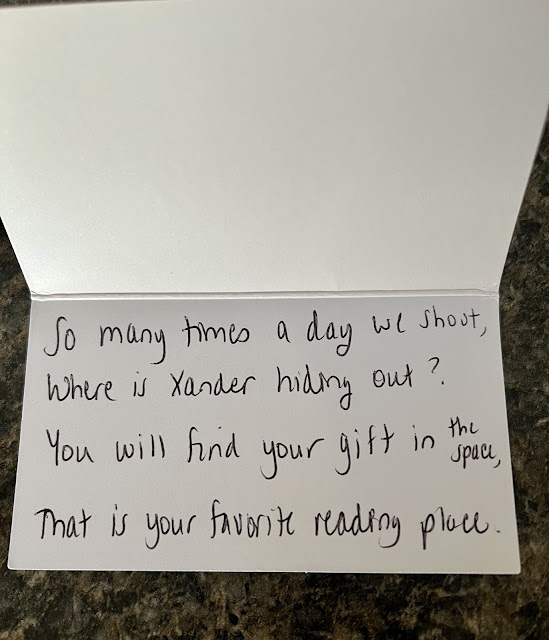 So many times a day we shout,
Where is Xander hiding out?
You will find your gift in the space,
That is your favorite reading place.